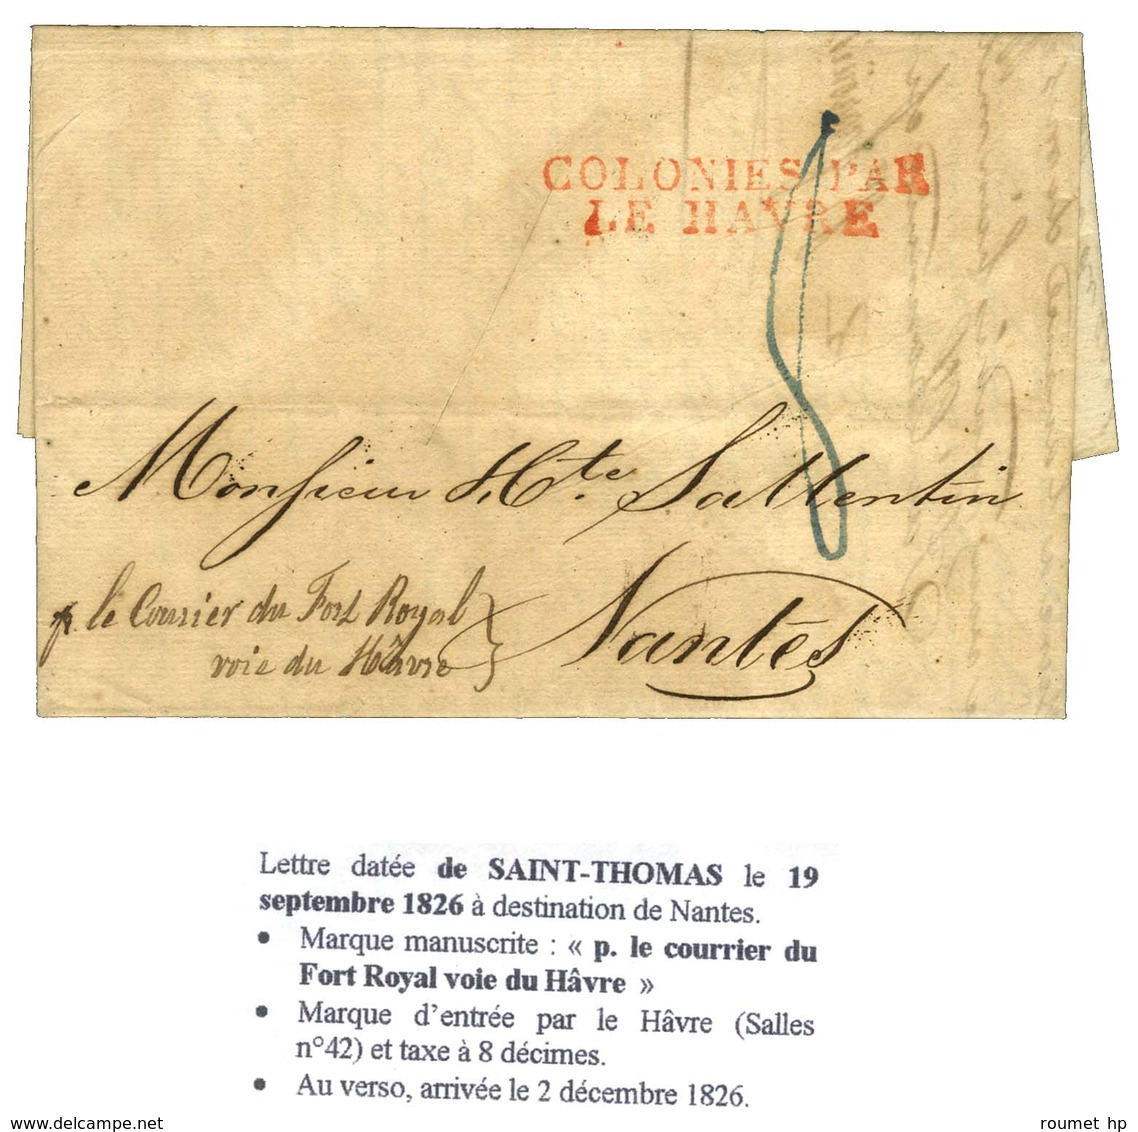 COLONIES PAR
LE HAVRE
8
Monsieur Hte. Sallentin
Nantes
p. le Courier du Fort Royal
voie du Hâvre
Lettre datée de SAINT-THOMAS le 19
septembre 1826 à destination de Nantes.
• Marque manuscrite : « p. le courrier du
Fort Royal voie du Hâvre »
• Marque d'entrée par le Hâvre (Salles
n°42) et taxe à 8 décimes.
• Au verso, arrivée le 2 décembre 1826.
www.delcampe.net
roumet hp